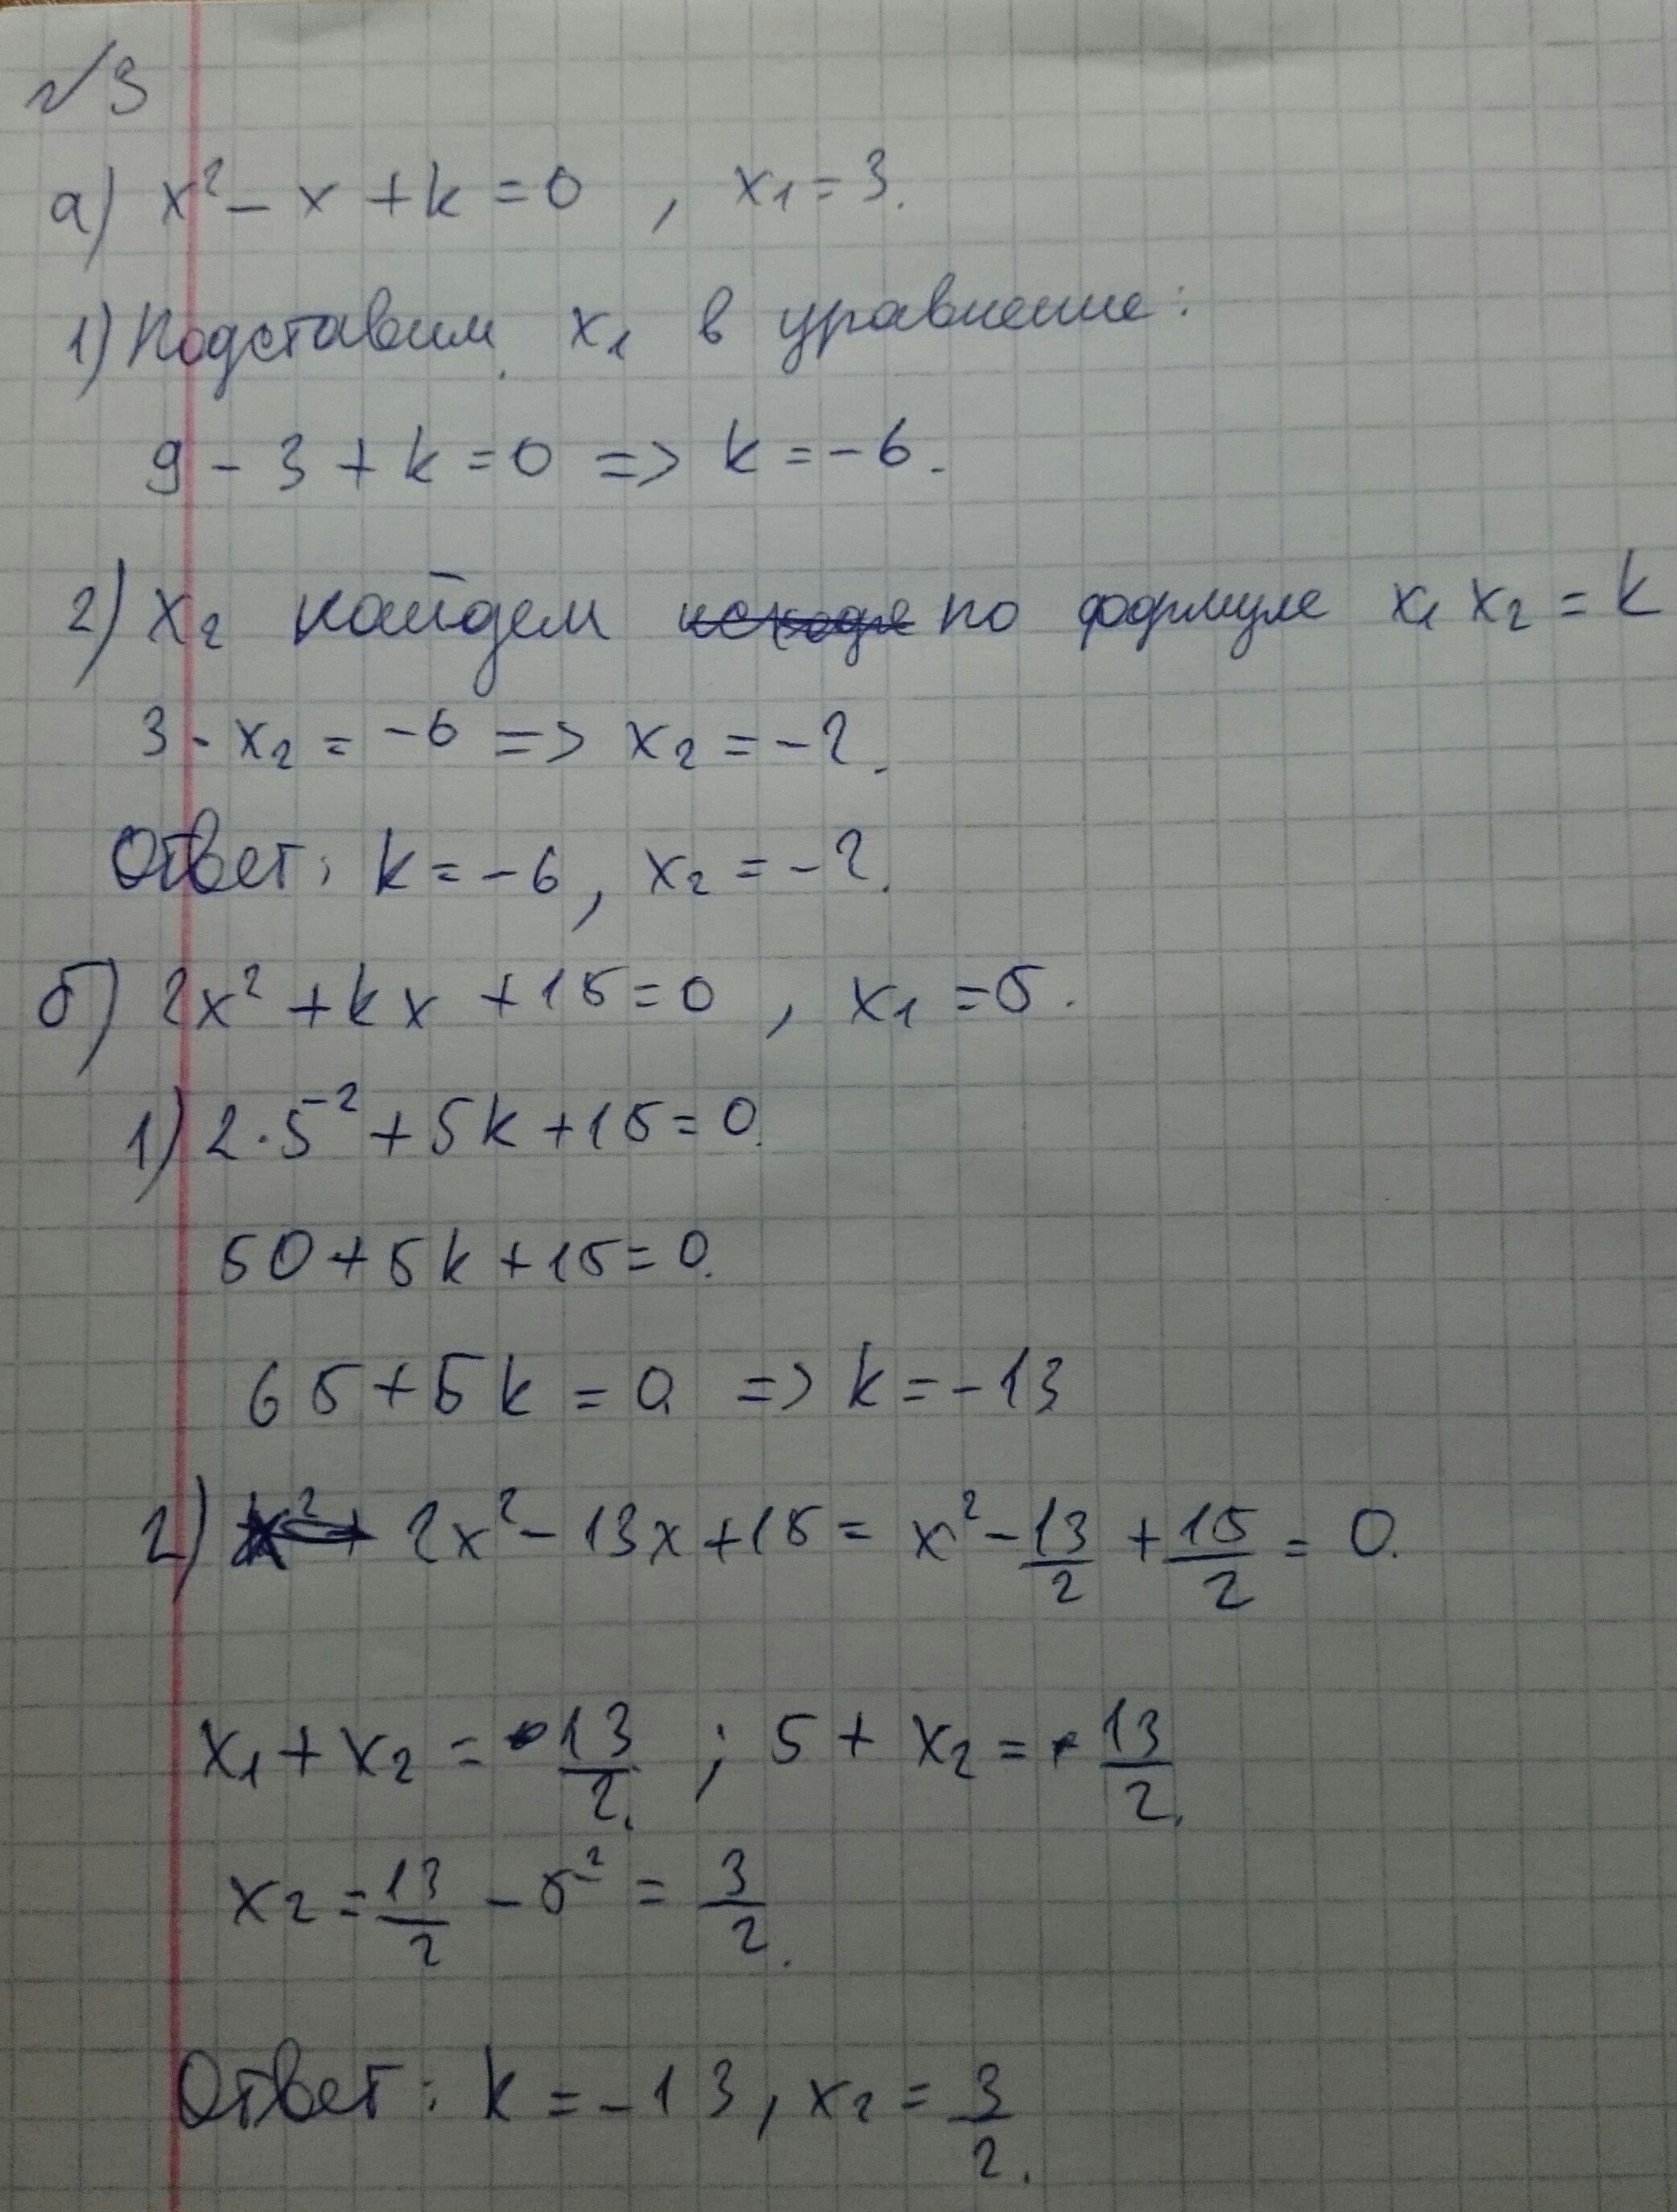 №3
а) x² - x + k = 0 , x₁ = 3.
1) Подставим x₁ в уравнение:
9 - 3 + k = 0 => k = -6.
2) x₂ найдем по формуле x₁ x₂ = k
3 · x₂ = -6 => x₂ = -2.
Ответ: k = -6, x₂ = -2.
б) 2x² + kx + 15 = 0 , x₁ = 5.
1) 2·5² + 5k + 15 = 0.
50 + 5k + 15 = 0.
65 + 5k = 0. => k = -13
2) 2x² - 13x + 15 = x² - 13/2 + 15/2 = 0.
x₁ + x₂ = 13/2. ; 5 + x₂ = 13/2.
x₂ = 13/2 - 5² = 3/2.
Ответ: k = -13, x₂ = 3/2.